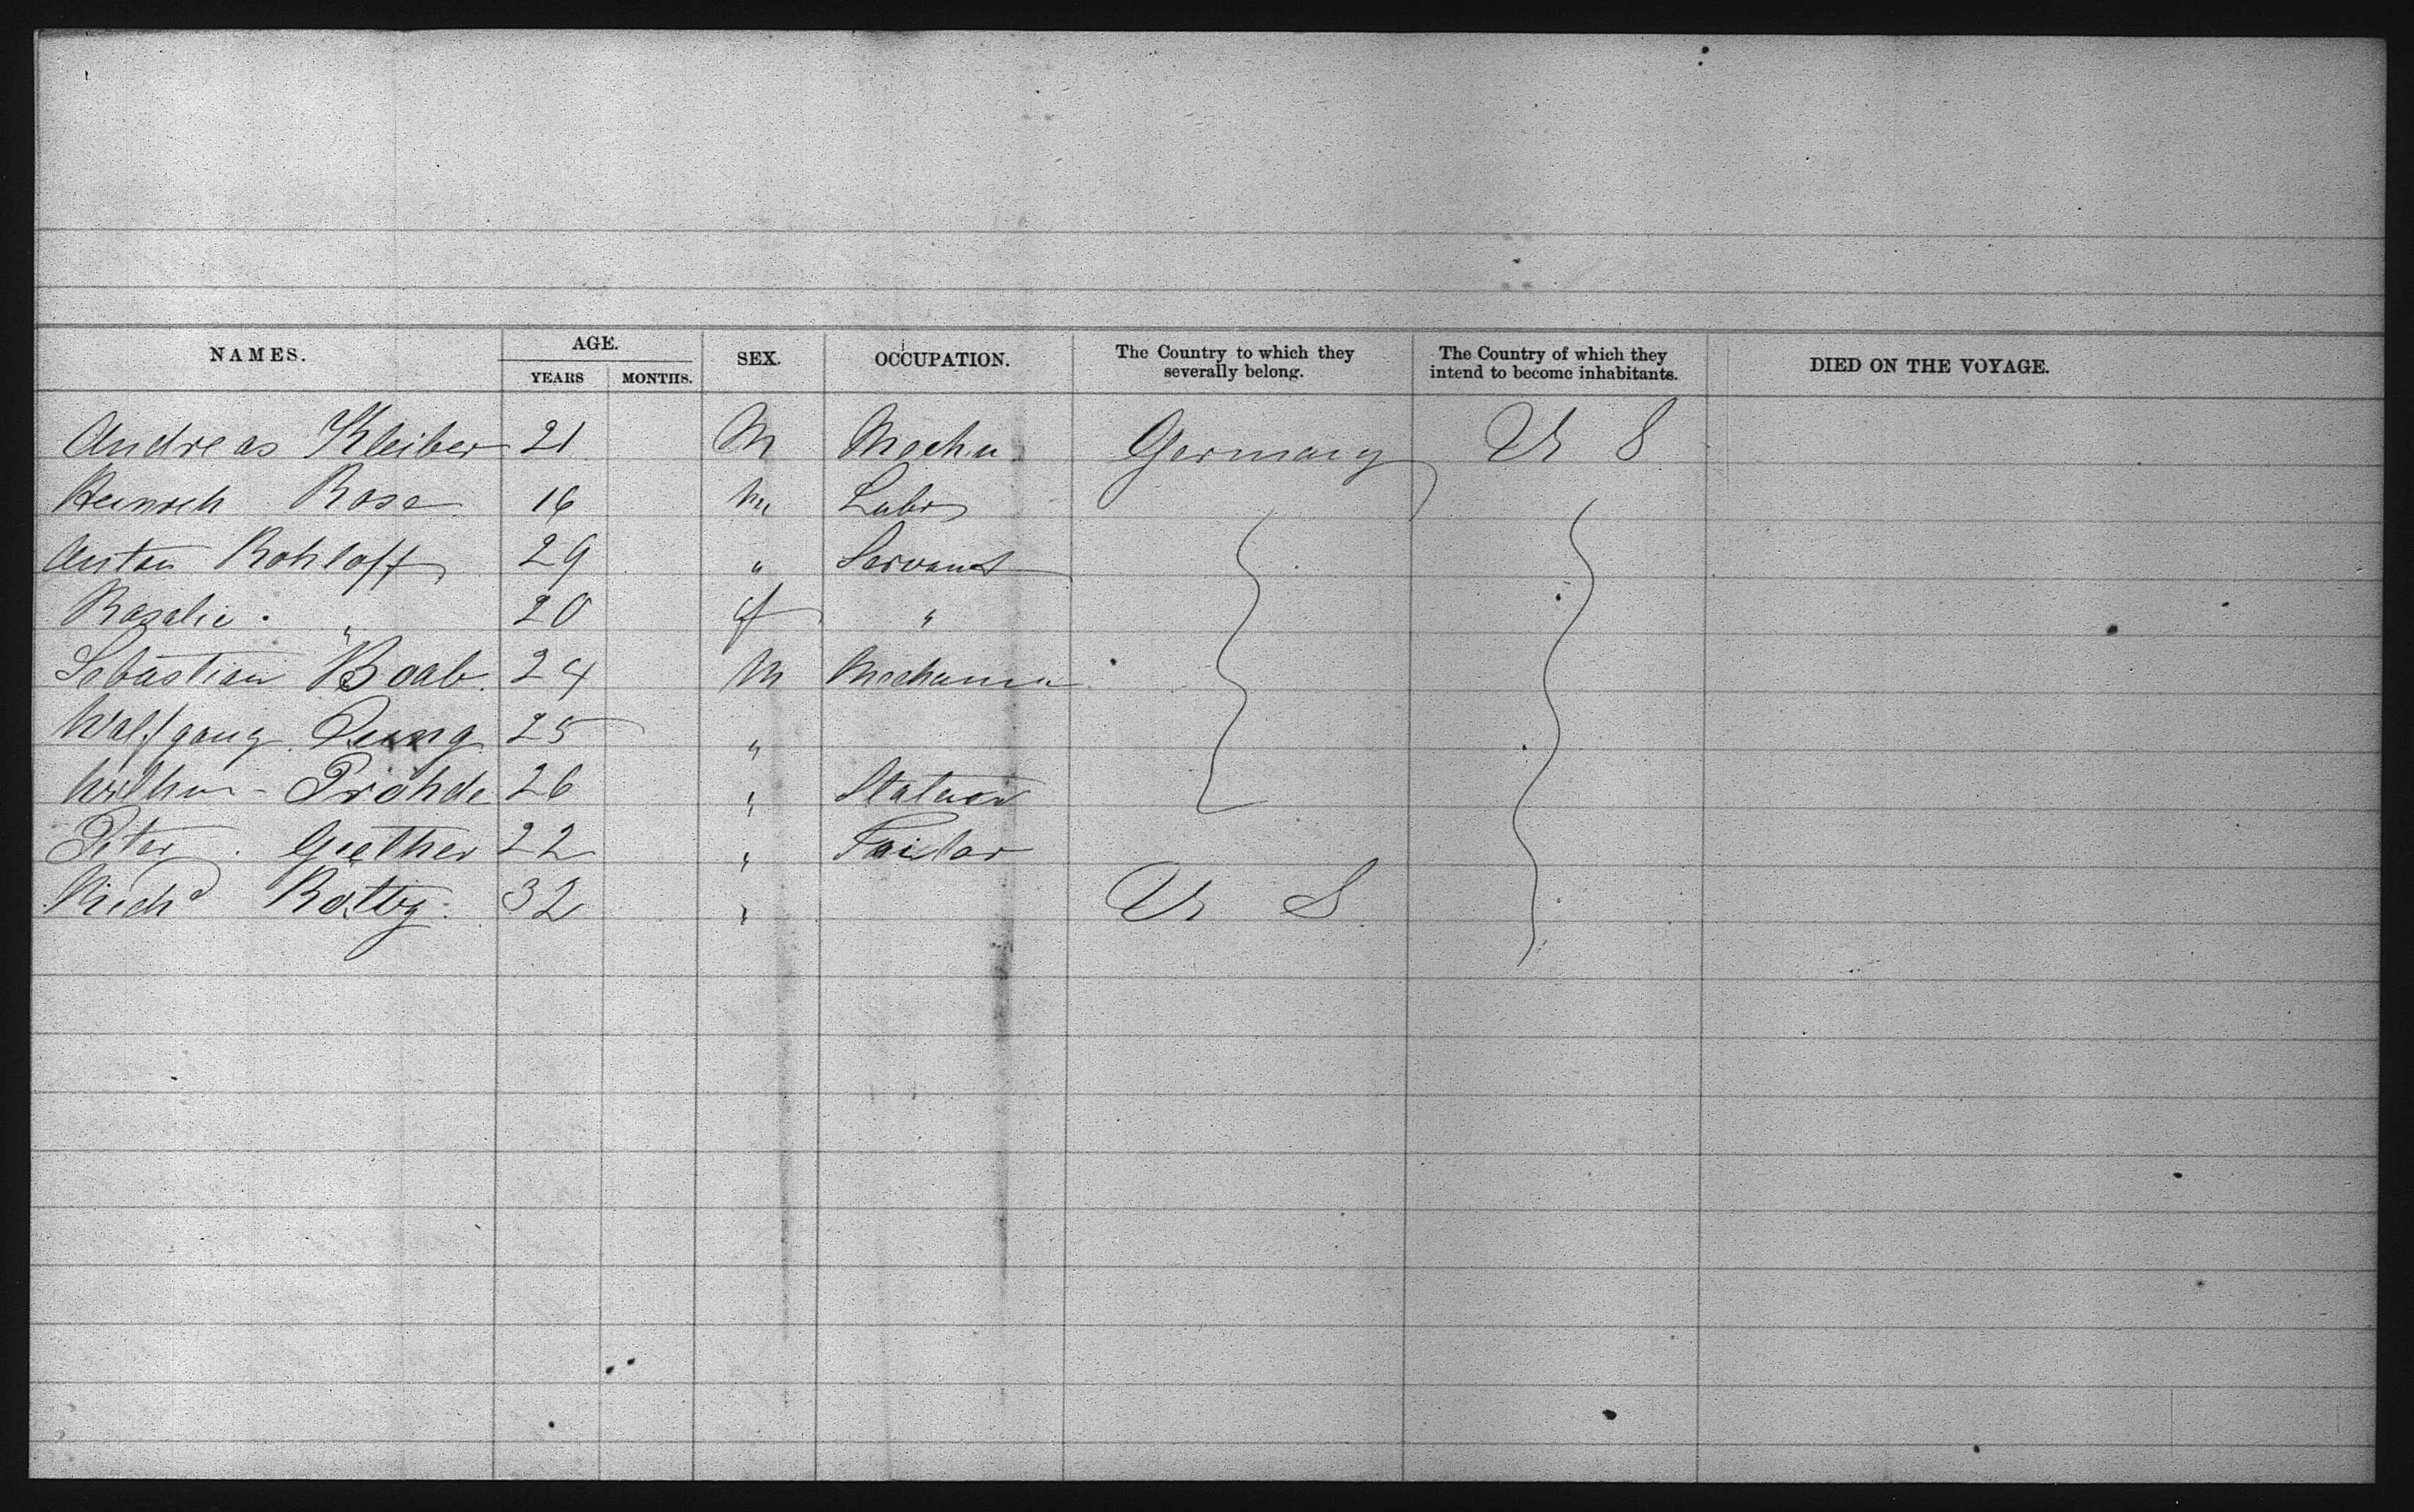 NAMES. AGE. SEX. OCCUPATION. The Country to which they severally belong. The Country of which they intend to become inhabitants. DIED ON THE VOYAGE.
YEARS MONTHS.
Andreas Kleiber 21 M Mechn Germany U S
Heinrich Rose 16 M Labr
Anton Rohloff 29 " Servant
Rosalie " 20 f "
Sebastian Boab 24 M Mechanic
Wolfgang 25 "
Wilhm Pröhde 26 "
Peter Giether 22 " Tailor
Richd 32 " U S